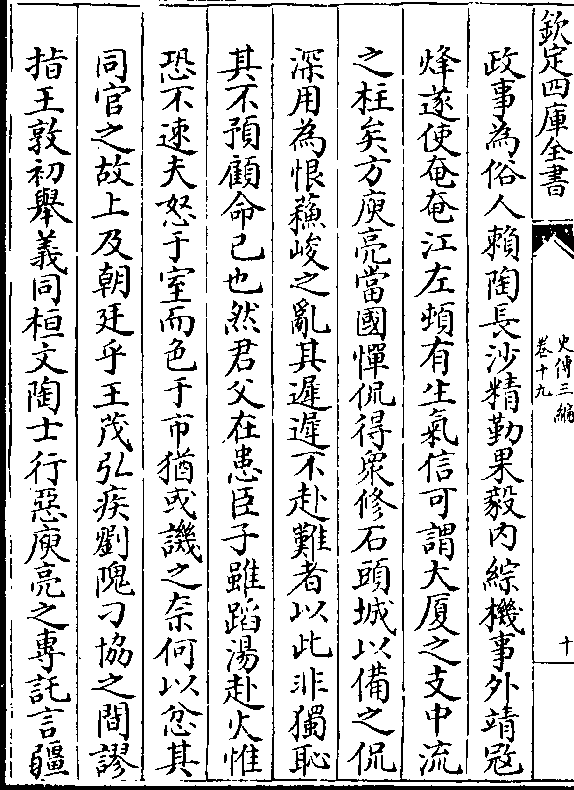 欽定四庫全書
史傳三編
卷十九
十
政事為俗人賴陶長沙精勤果毅内綜機事外靖冦
烽遂使奄奄江左頓有生氣信可謂大厦之支中流
之柱矣方庾亮當國憚侃得衆修石頭城以備之侃
深用為恨蘓峻之亂其遲遲不赴難者以此非獨恥
其不預顧命已也然君父在患臣子雖蹈湯赴火惟
恐不速夫怒于室而色于市猶或譏之奈何以忿其
同官之故上及朝廷乎王茂弘疾劉隗刁協之間謬
指王敦初舉義同桓文陶士行惡庾亮之專託言疆